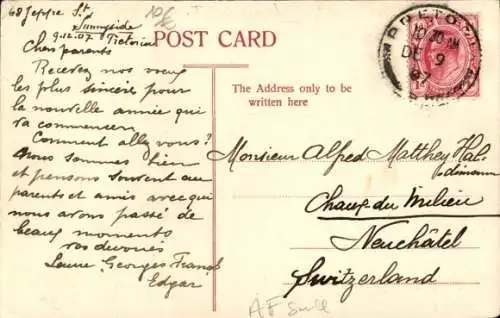 68 Jeppe St.
Sunnyside
9.12.07 Pretoria
Chers parents
Recevez nos voeux
les plus sincère pour
la nouvelle année qui
va commencer
Comment allez vous?
Nous sommes bien
et pensons souvent aux
parents et amis avec qui
nous avons passé de
beaux moments
vos dévoués
Laure Georges Franck
Edgar
POST CARD
The Address only to be
written here
PRETORIA
10 30 AM
DE 9
07
Monsieur Alfred Matthey
Chaux du Milieu
Neuchâtel
Switzerland